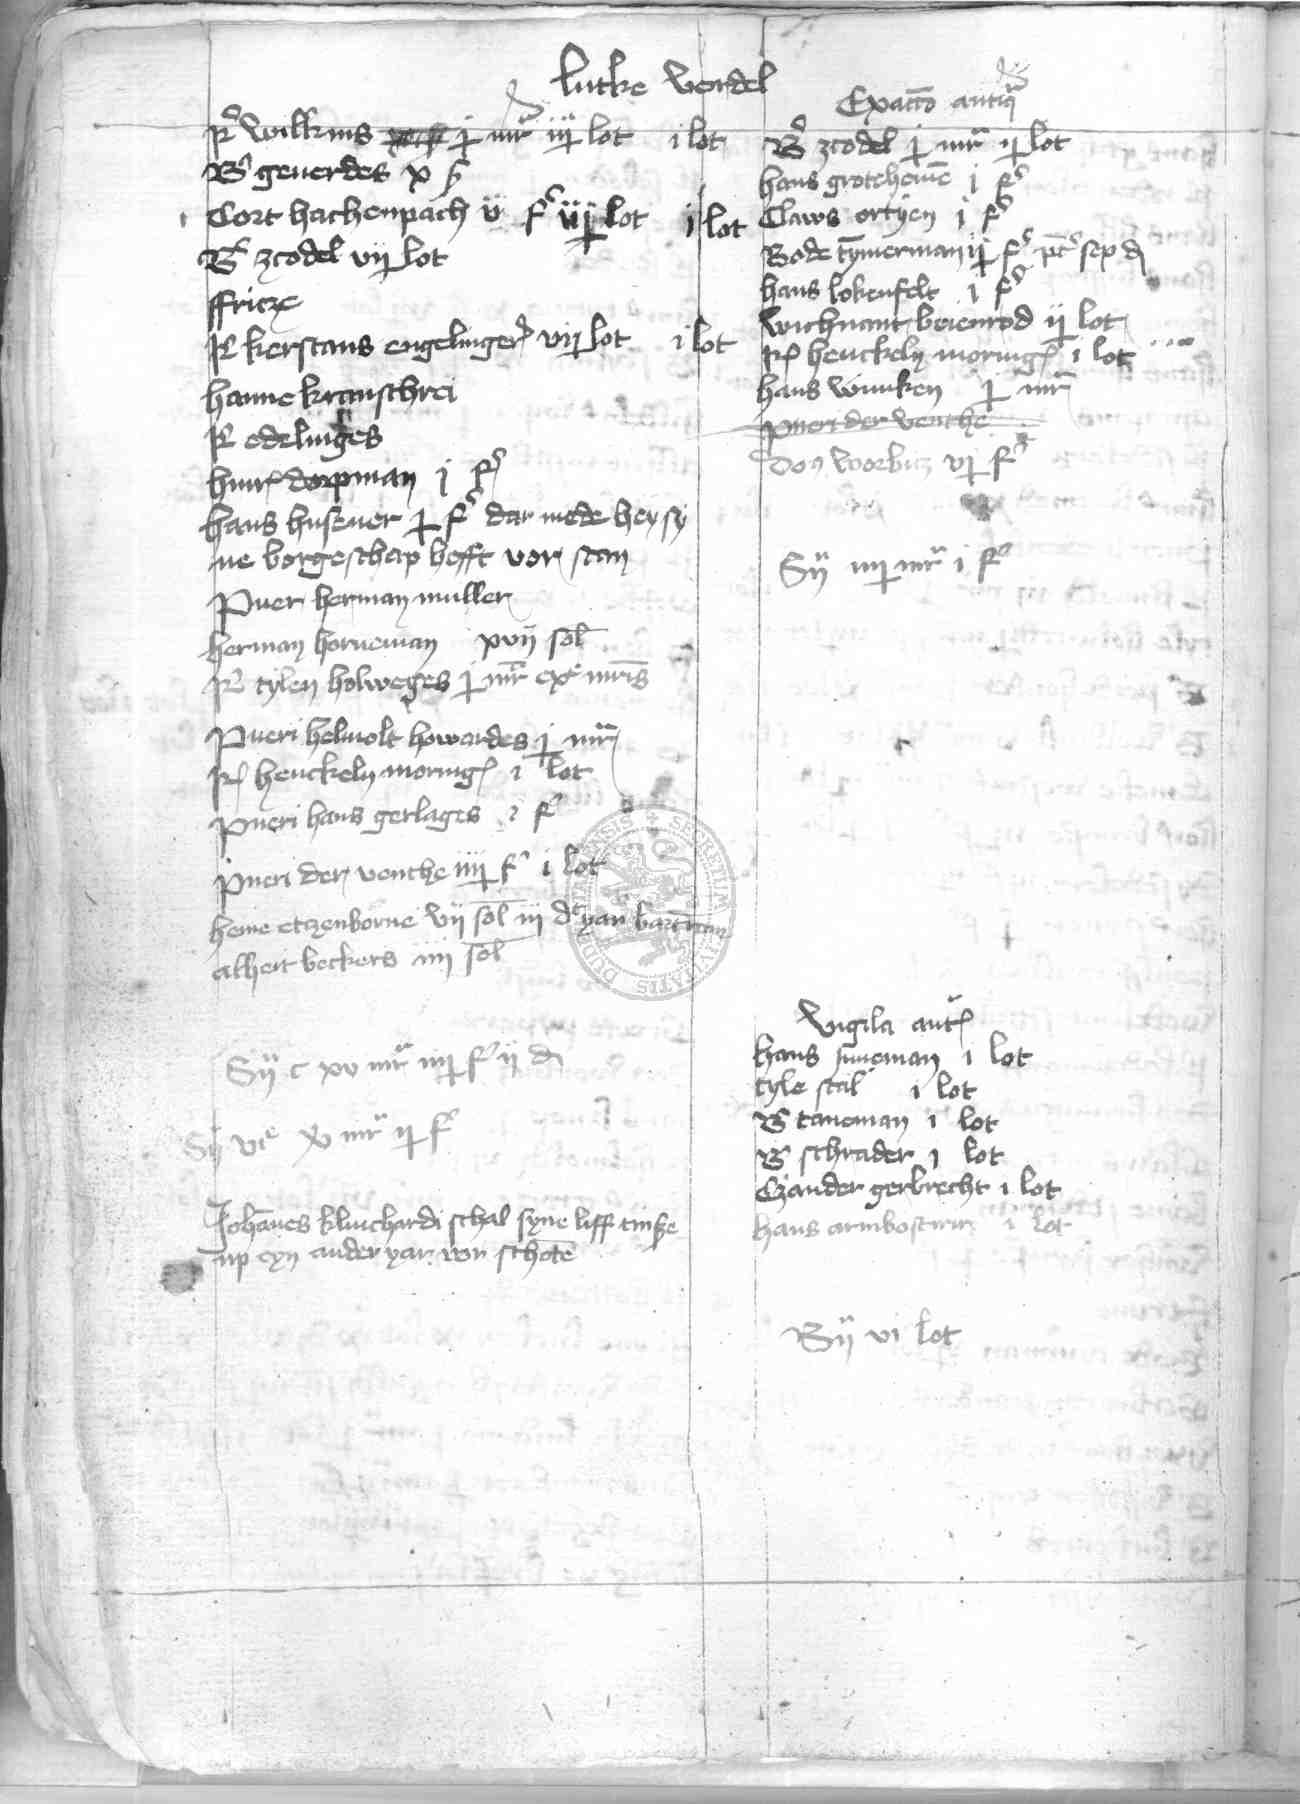 lutke verdel
R wilkins j mr iij lot i lot
B geuerdes x s
Cort hachenpach ij f iij lot i lot
B zcodel vij lot
ffricze
R kerstans engelinger viij lot i lot
hanne kranschrei
R edelinges
hinr dorpman j f
hans husener j f dar mede hey sy
ne borgeschap hefft vor stan
Puer herman muller
herman horneman xvij sol
R tylen holweges j mr ex mris
Pueri helmolt howardes j mr
R henckeln moring i lot
Pueri hans gerlages i f
Pueri der venthe iiij f i lot
heine etzenborne vij sol iij d yan bartram
albert beckers iiij sol
Sij c xv mr iiij f ij d
Sij vc xv mr ij f
Johanes klinchardi schal syne liff tinsze
up eyn ander yar vor schote
Exactio antiq
B zcodel j mr ij lot
hans grotehenne j f
Claws ortyen i f
Bode tymerman ij f
hans lokenfelt i f
wichnant beienrod ij lot
R henckeln moring i lot
hans winken j mr
pueri der venthe
worbicz vj f
Sij iiij mr i f
Vigila ant
hans suneman i lot
tyle stal i lot
B taneman i lot
B schrader j lot
Czander gerbrecht i lot
hans armbosterer i lot
Sij vi lot